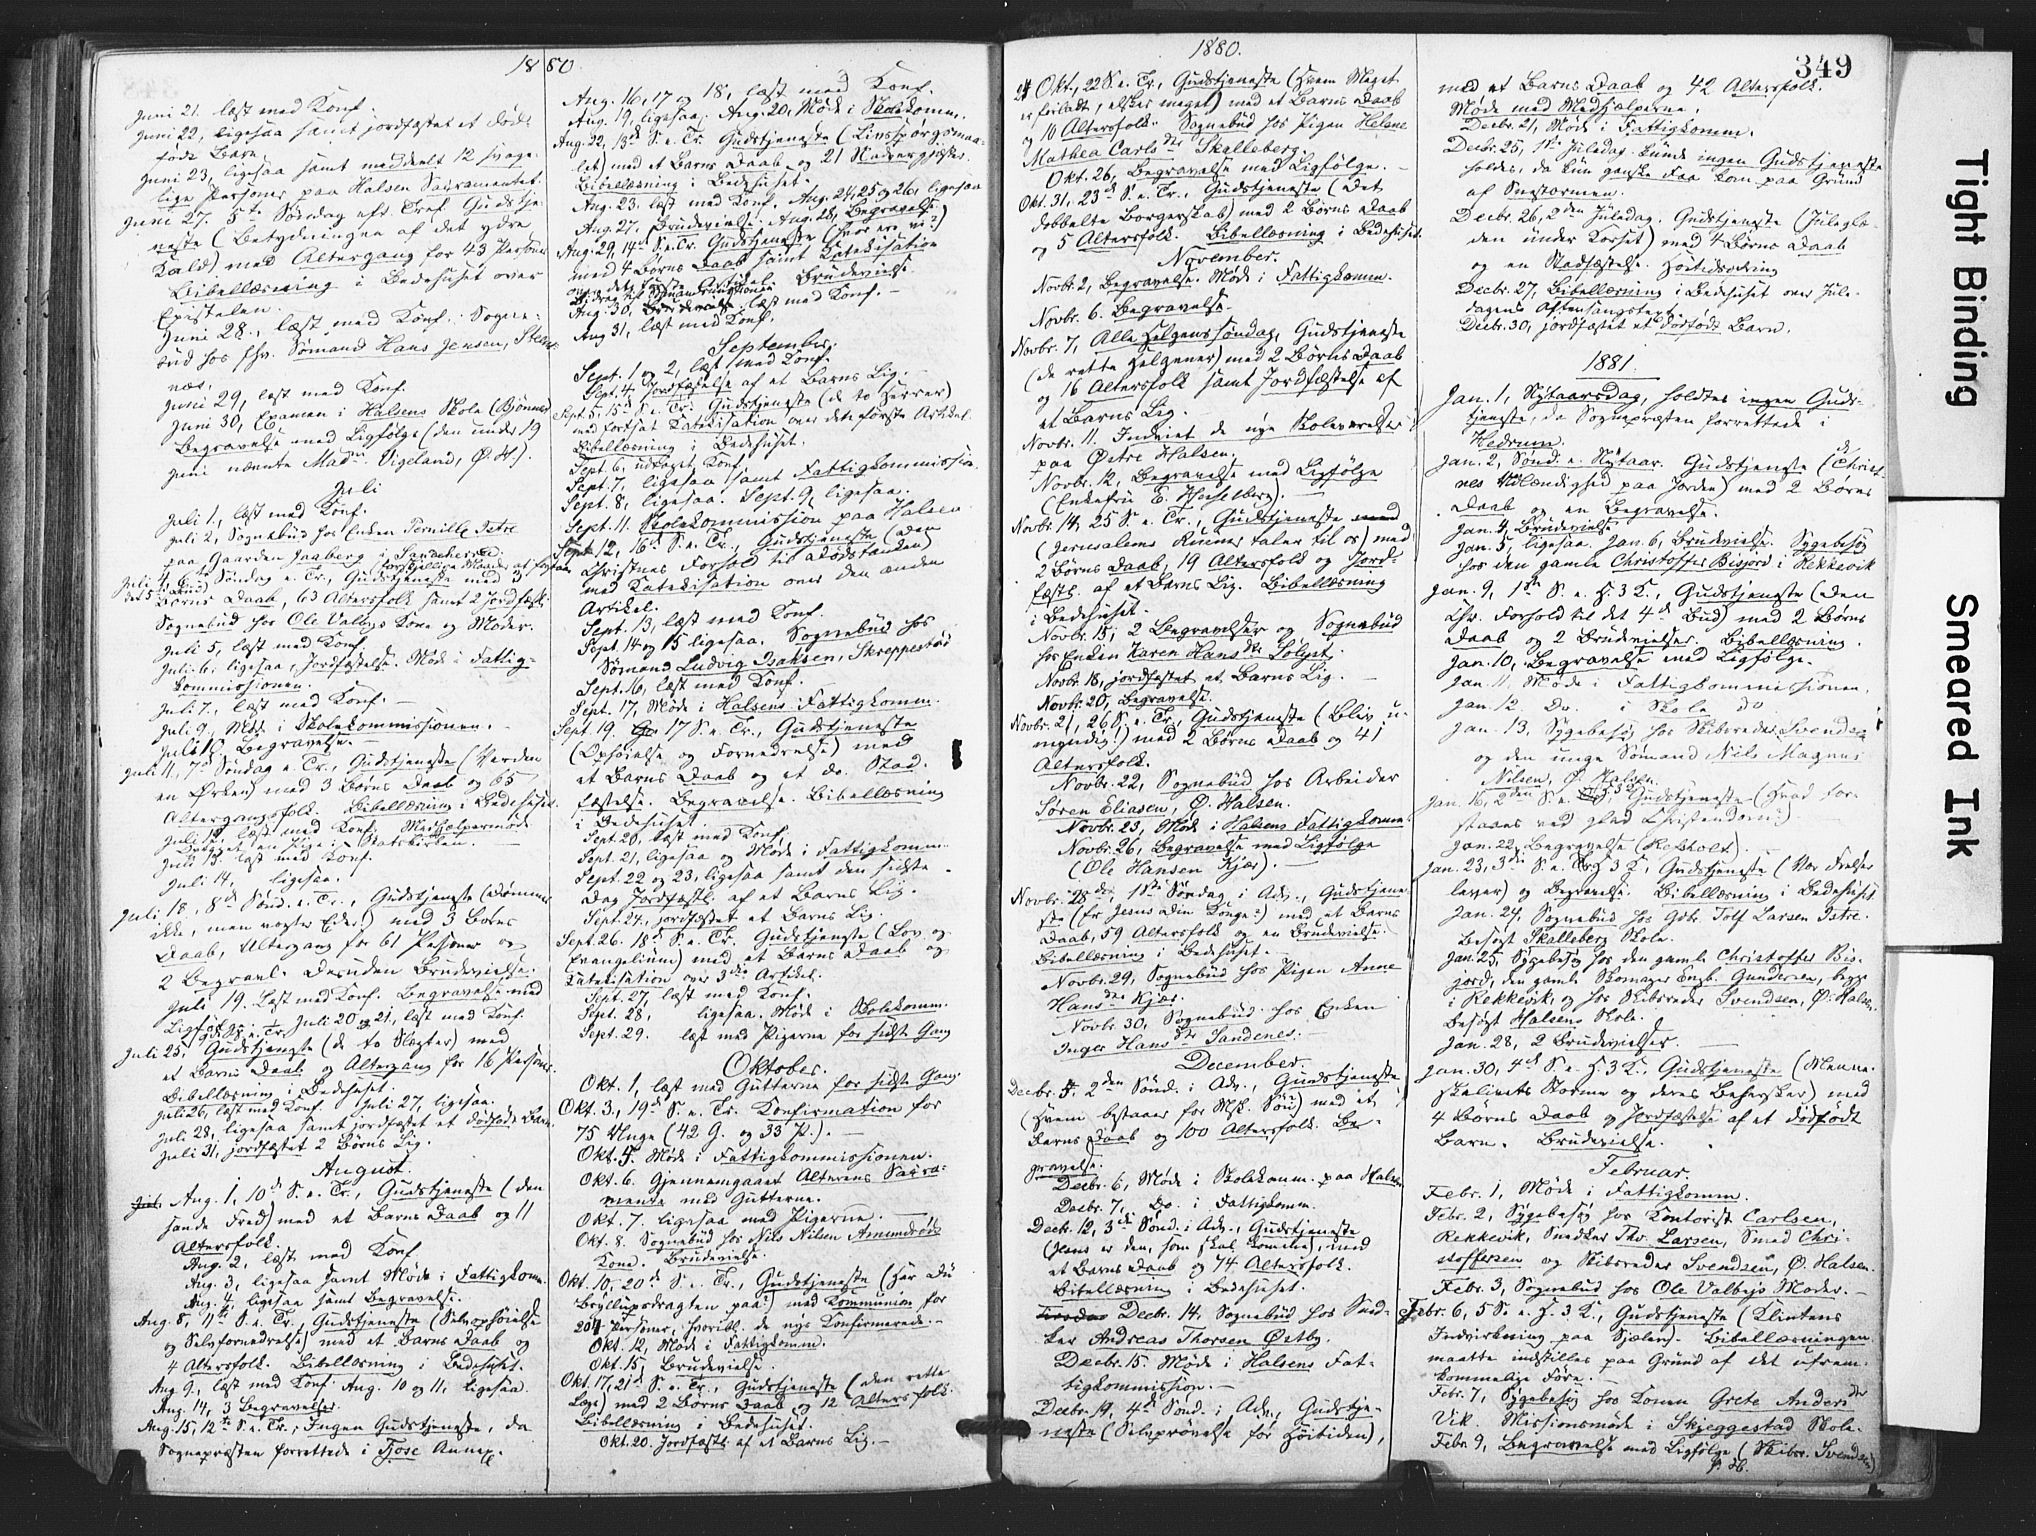 1880.
Juni 21. læst med Konf.
Juni 22, ligesaa samt jordfæstet et død-
født Barn.
Juni 23, ligesaa samt meddeelt 12 svage-
lige Personer paa Halsen Sacramentet.
Juni 27. 5te Søndag eft. Tref. Gudstje-
neste (Betydningen af det ydre
Kald) med Altergang for 43 Personer
Bibellæsning i Bedehuset over
Epistelen.
Juni 28., læst med Konf. Sogne-
bud hos fhv. Sømand Hans Jensen,
næs.
Juni 29, læst med Konf.
Juni 30, Examen i Halsens Skole (Bjønnes)
Begravelse med Ligfølge (den under 19
Juni nævnte Mad. Vigeland, Ø. H.).
Juli
Juli 1., læst med Konf.
Juli 2, Sognebud hos Enken Pernille Istre
paa Gaarden Jaaberg i Sandeherred.
Juli 4, 6te Søndag e. Tr., Gudstjeneste med 3
det 5te Bud
Børns Daab, 63 Altersfolk samt 2 Jordfæst.
Sognebud hos Ole Valbys Kone og Moder.
Juli 5, læst med Konf.
Juli 6. ligesaa, Jordfæstelse. Møde i Fattig-
kommissionen.
Juli 7., læst med Konf. —
Juli 9, Møde i Skolekommissionen.
Juli 10, Begravelse.
7de Søndag e. Tr., Gudstjeneste (Verden
en Ørken) med 3 Børns Daab og 65
Altergangsfolk. Bibellæsning i Bedehuset.
Juli 12, læst med Konf. Medhjælpermøde
Juli 13. læst med Konf.
Juli 14, ligesaa.
Juli 18, 8de Sønd. e. Tr., Gudstjeneste (Dømmer
ikke, men vogter Eder!) med 3 Børns
Daab, Altergang for 61 Personer og
2 Begravl. Desuden Brudevielse.
Juli 19. Læst med Konf. Begravelse med
Ligfølge. — Juli 20 og 21., læst med Konf.
Juli 25, Gudstjeneste (de to Slægter) med
et Barns Daab og Altergang for 16 Personer.
Bibellæsning i Bedehuset.
Juli 26, læst med Konf. Juli 27, ligesaa.
Juli 28, ligesaa samt jordfæstet et dødfødt Barn.
Juli 31, jordfæstet 2 Børns Lig.
August.
Aug. 1, 10de S. e. Tr., Gudstjeneste (den
sande Fred) med et Barns Daab og 11
Altersfolk.
Aug. 2, læst med Konf.
Aug. 3, ligesaa samt Møde i Fattigkomm.
Aug. 4, ligesaa samt Begravelse.
Aug. 8, 11te S. e. Tr., Gudstjeneste (Selvophøielse
og Selvfornedrelse) med et Barns Daab og
4 Altersfolk. Bibellæsning i Bedehuset.
Aug. 9., læst med Konf. Aug. 10 og 11, ligesaa.
Aug. 14, 3 Begravelser.
Aug. 15, 12te S. e. Tr., Ingen Gudstjeneste, da
Sognepræsten forrettede i Tjose Annex.
Aug. 16, 17 og 18, læst med Konf.
Aug. 19, ligesaa. Aug. 20, Møde i Skolekomm.
Aug. 22, 13de S. e. Tr. Gudstjeneste (Livsspørgsmaa-
let) med et Barns Daab og 21 Nadvergjæster.
Bibellæsning i Bedehuset.
Aug. 23. læst med Konf. Aug. 24, 25 og 26, ligesaa
Aug. 27. Brudevielse. Aug. 28, Begravelse
Aug. 29, 14de S. e. Tr. Gudstjeneste (hvor ere vi?)
med 4 Børns Daab samt Katekisation
over den første Artikel. Brudevielse
Aug. 30, læst med Konf. —
Aug 31, læst med Konf.
September.
Sept. 1 og 2, læst med Konf.
Sept. 4, Jordfæstelse af et Barns Lig. —
Sept. 5, 15de S. e. Tr. Gudstjeneste (de to Herrer)
med fortsat Katekisation over den første Artikel.
Bibellæsning i Bedehuset.
Sept. 6, udtaget Konf.
Sept. 7, ligesaa samt Fattigkommission.
Sept. 8, ligesaa. Sept. 9, ligesaa.
Sept. 11. Skolekommission paa Halsen.
Sept. 12, 16de S. e. Tr., Gudstjeneste (den
Christnes Forhold til Modstanden)
med Katekisation over den anden
Artikel.
Sept. 13, læst med Konf.
Sept. 14 og 15 ligesaa. Sognebud hos
Sømand Ludvig Isaksen, Skreppestad
Sept. 16, læst med Konf.
Sept. 17, Møde i Halsens Fattigkomm.
Sept. 19. 17 S. e. Tr., Gudstjeneste
(Ophøielse og Fornedrelse) med
et Barns Daab og et do. Stad-
fæstelse. Begravelse. Bibellæsning
i Bedehuset.
Sept. 20, læst med Konf.
Sept. 21, ligesaa og Møde i Fattigkomm.
Sept. 22 og 23, ligesaa samt den sidste
Dag Jordfæst. af et Barns Lig.
Sept. 24, jordfæstet et Barns Lig.
Sept. 26. 18de S. e. Tr. Gudstjeneste (Lov og
Evangelium) med et Barns Daab og
Katekisation over 3die Artikel.
Sept. 27, læst med Konf.
Sept. 28, ligesaa. Møde i Skolekomm.
Sept. 29. læst med Pigerne for sidste Gang
Oktober.
Okt. 1, læst med Gutterne for sidste Gang.
Okt. 3., 19de S. e. Tr. Konfirmation for
75 Unge (42 G. og 33 P.).
Okt. 5. Møde i Fattigkommissionen.
Okt. 6. Gjennemgaaet Alterens Sacra-
mente med Gutterne.
Okt. 7. ligesaa med Pigerne.
Okt. 8. Sognebud hos Nils Nilsen Amundrøds
Kone. Brudevielse.
Okt. 10, 20de S. e. Tr., Gudstjeneste (Har du
Bryllupsdragten paa?) med Kommunion for
204 Personer, hvoribl. de nys Konfirmerede. —
Okt. 12, Møde i Fattigkomm.
Okt. 15, Brudevielse.
Okt. 17, 21de S. e. Tr., Gudstjeneste (den rette
Læge) med 2 Børns Daab og 12 Altersfolk.
Bibellæsning i Bedehuset.
Okt. 20. Jordfæst. af et Barns Lig. —
1880.
24 Okt., 22 S. e. Tr., Gudstjeneste (Hvem Meget
er forladt, elsker meget) med et Barns Daab
og 10 Altersfolk. Sognebud hos Pigen Helene
Mathea Carlsdtr Skalleberg.
Okt. 26, Begravelse med Ligfølge. —
Okt. 31. 23de S. e. Tr., Gudstjeneste (Det
dobbelte Borgerskab) med 2 Børns Daab
og 5 Altersfolk. Bibellæsning i Bedehuset.
November.
Novbr. 2, Begravelse. Møde i Fattigkomm.
Novbr. 6. Begravelse.
Novbr. 7, Alle Helgens Søndag, Gudstjeneste
(de rette Helgener) med 2 Børns Daab
og 16 Altersfolk samt Jordfæstelse af
et Barns Lig.
Novbr. 11. Indviet de nye Skoleværelser
paa Østre Halsen.
Novbr. 12, Begravelse med Ligfølge
(Enkefru E. Hesselberg). —
Novbr. 14, 25 S. e. Tr., Gudstjeneste med
(Jerusalems Ruiner taler til os) med
2 Børns Daab, 19 Altersfolk og Jord-
fæst. af et Barns Lig. Bibellæsning
i Bedehuset.
Novbr. 15, 2 Begravelser og Sognebud
hos Enken Karen Hansdtr Sølyst.
Novbr. 18, jordfæstet et Barns Lig. —
Novbr. 20, Begravelse.
Novbr. 21, 26 S. e. Tr., Gudstjeneste (Bliv u-
myndig!) med 2 Børns Daab og 41
Altersfolk.
Novbr. 22, Sognebud hos Arbeider
Søren Eliasen, Ø. Halsen.
Novbr. 23, Møde i Halsens Fattigkomm.
Novbr. 26, Begravelse med Ligfølge
(Ole Hansen Kjær). —
Novbr. 28de, 1ste Søndag i Adv., Gudstjene-
ste (Er Jesus din Konge?) med et Barns
Daab, 59 Altersfolk og en Brudevielse.
Bibellæsning i Bedehuset. —
Novbr. 29, Sognebud hos Pigen Anne
Hansdtr Kjær.
Novbr. 30, Sognebud hos Enken
Inger Hansdtr Sandenes. —
December.
Decbr. 5. 2den Sønd. i Adv., Gudstjeneste
(Hvem bestaaer for Msk. Søn?) med et
Barns Daab og 100 Altersfolk. Be-
gravelse.
Decbr. 6, Møde i Skolekomm. paa Halsen
Decbr. 7, Do. i Fattigkomm.
Decbr. 12, 3de Sønd. i Adv., Gudstjeneste
(Jesus er den, som skal komme), med
et Barns Daab og 74 Altersfolk.
Bibellæsning i Bedehuset.
Decbr. 14. Sognebud hos Snd-
ker Andreas Thorsen Østby.
Decbr. 15. Møde i Halsens Fat-
tigkommission. —
Decbr. 19, 4de Sønd. i Adv., Gudstje-
neste (Selvprøvelse før Høitiden),
349
med et Barns Daab og 42 Altersfolk.
Møde med Medhjælperne.
Decbr. 21, Møde i Fattigkomm.
Decbr. 25, 1ste Juledag. Kunde ingen Gudstjeneste
holdes, da kun ganske Faa kom paa Grund
af Snestormen.
Decbr. 26, 2den Juledag. Gudstjeneste (Juleglæ-
den under Korset) med 4 Børns Daab
og en Stadfæstelse. Høitidsofring
Decbr. 27, Bibellæsning i Bedehuset over Jule-
dagens Aftensangstext.
Decbr. 30, jordfæstet et dødfødt Barn.
1881.
Jan. 1, Nytaarsdag, holdtes ingen Guds-
tjeneste, da Sognepræsten forrettede i
Hedrum.
Jan. 2, Sønd. e. Nytaar. Gudstjeneste (de Christ-
nes Udlændighed paa Jorden) med 2 Børns
Daab og en Begravelse.
Jan. 4, Brudevielse.
Jan. 5, ligesaa. Jan. 6, Brudevielse. Sygebesøg
hos den gamle Christoffer Bisjord i Rekkevik
Jan. 9, 1ste S. e. H. 3 K., Gudstjeneste (den
Chr. Forhold til det 4de Bud) med 2 Børns
Daab og 2 Brudevielser. Bibellæsning.
Jan. 10, Begravelse med Ligfølge.
Jan. 11, Møde i Fattigkommissionen.
Jan. 12. Do. i Skole do
Jan. 13, Sygebesøg hos Skibsreder Svendsen
og den unge Sømand Nils Magnus
Nilsen, Ø. Halsen.
Jan. 16, 2den S. e. H. 3 K., Gudstjeneste (Hvad for-
staaes ved glad Christendom?)
Jan. 22, Begravelse (Rekholt).
Jan. 23, 3die S. e. H 3 K., Gudstjeneste (Vor Frelser
lever) og Begravelse. Bibellæsning i Bedehuset
Jan. 24, Sognebud hos Gdb. Tolf Larsen Istre.
Besøgt Skalleberg Skole.
Jan. 25, Sygebesøg hos den gamle Christoffer Bis-
jord, den gamle Skomager Engb. Gundersen, begge
i Rekkevik, og hos Skibsreder Svendsen, Ø. Halsen.
Besøgt Halsens Skole.
Jan. 28, 2 Brudevielser. —
Jan. 30, 4de S. e. H. 3 K., Gudstjeneste (Menne-
skelivets Storme og deres Behersker) med
4 Børns Daab og Jordfæstelse af et dødfødt
Barn. Brudevielse.
Februar.
Febr. 1, Møde i Fattigkomm.
Febr. 2, Sygebesøg hos Kontorist Carlsen,
Rekkevik, Snedker Thv. Larsen, Smed Chri-
stoffersen og Skibsreder Svendsen, Ø. Halsen.
Febr. 3, Sognebud hos Ole Valbys Moder. —
Febr. 6, 5 S. e. H. 3 K., Gudstjeneste (Klintens
Indvirkning paa Sjælen). Bibellæsningen
maatte indstilles paa Grund af det ufrem-
kommelige Føre. —
Febr. 7, Sygebesøg hos Konen Grete Andersdtr
Vik. Missionsmøde i Skjeggestad Skole.
Febr. 9, Begravelse med Ligfølge (Skibsr. Svendsen)
Tight Binding
Smeared Ink